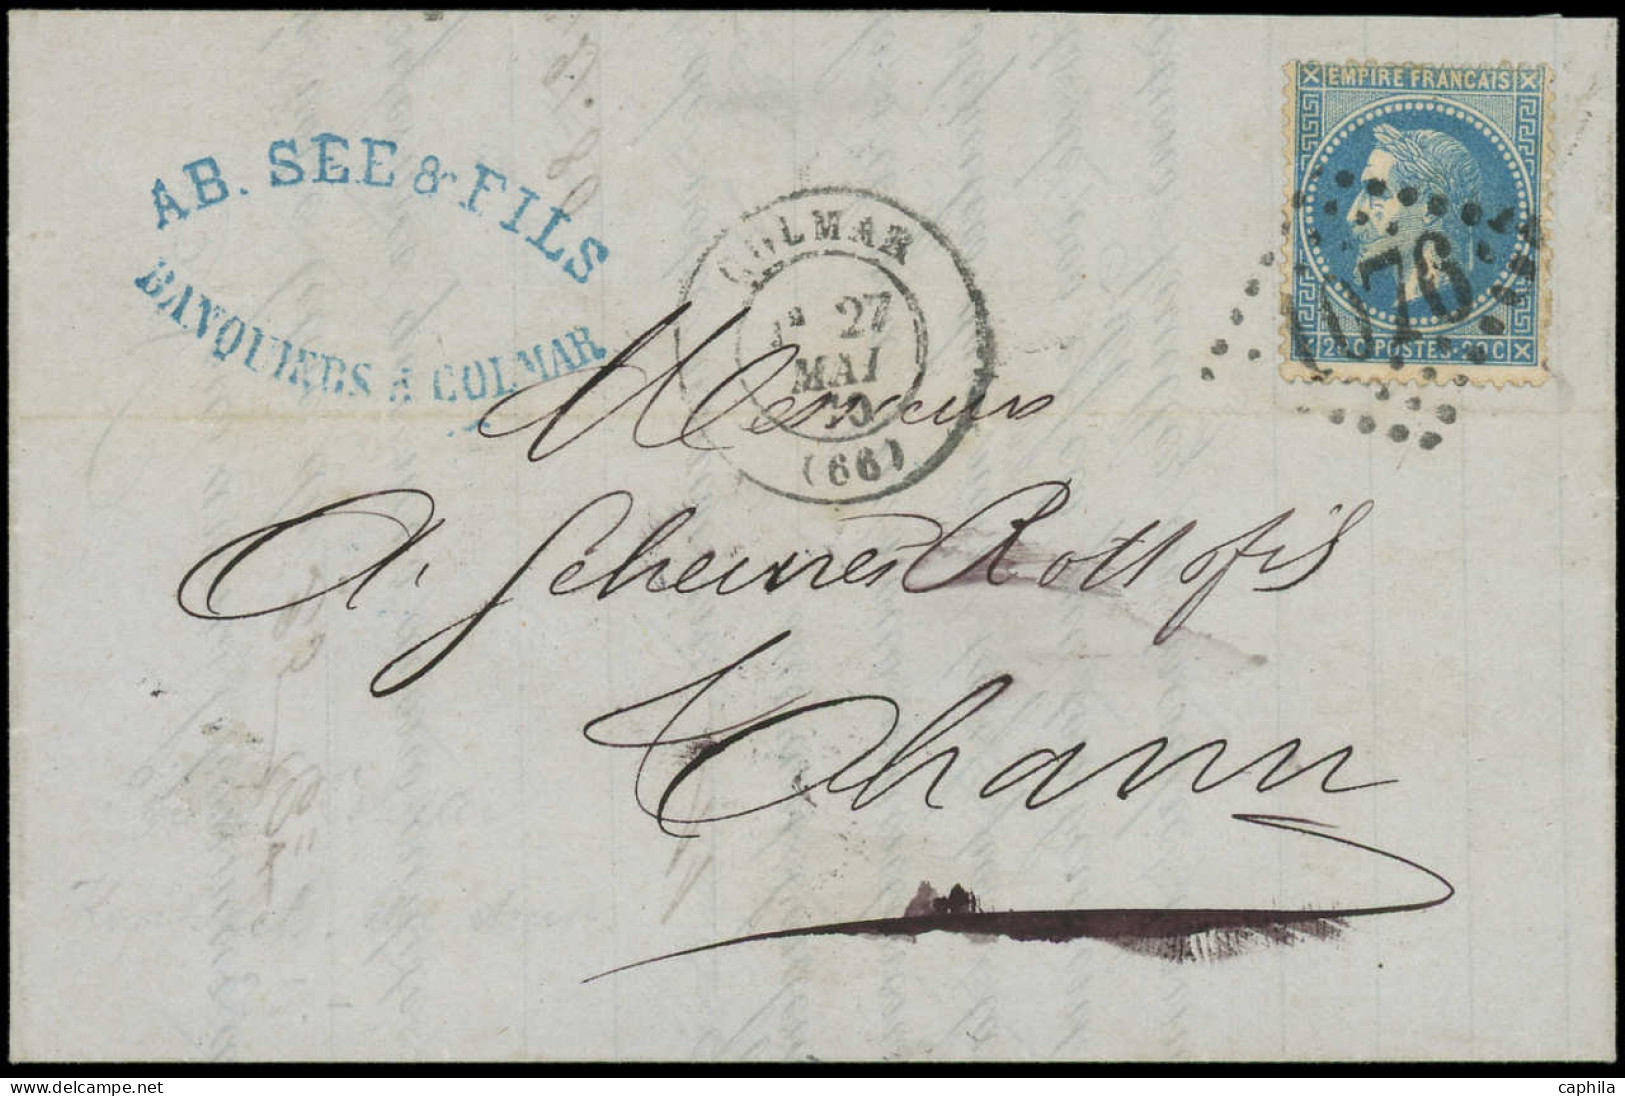 AB. SEE & FILS
BANQUIERS A COLMAR
COLMAR
27
MAI
70
(66)
EMPIRE FRANCAIS
1076
20 C POSTES 20 C
Messieurs
A. Scheurer Rott & fils
Thann
caphila